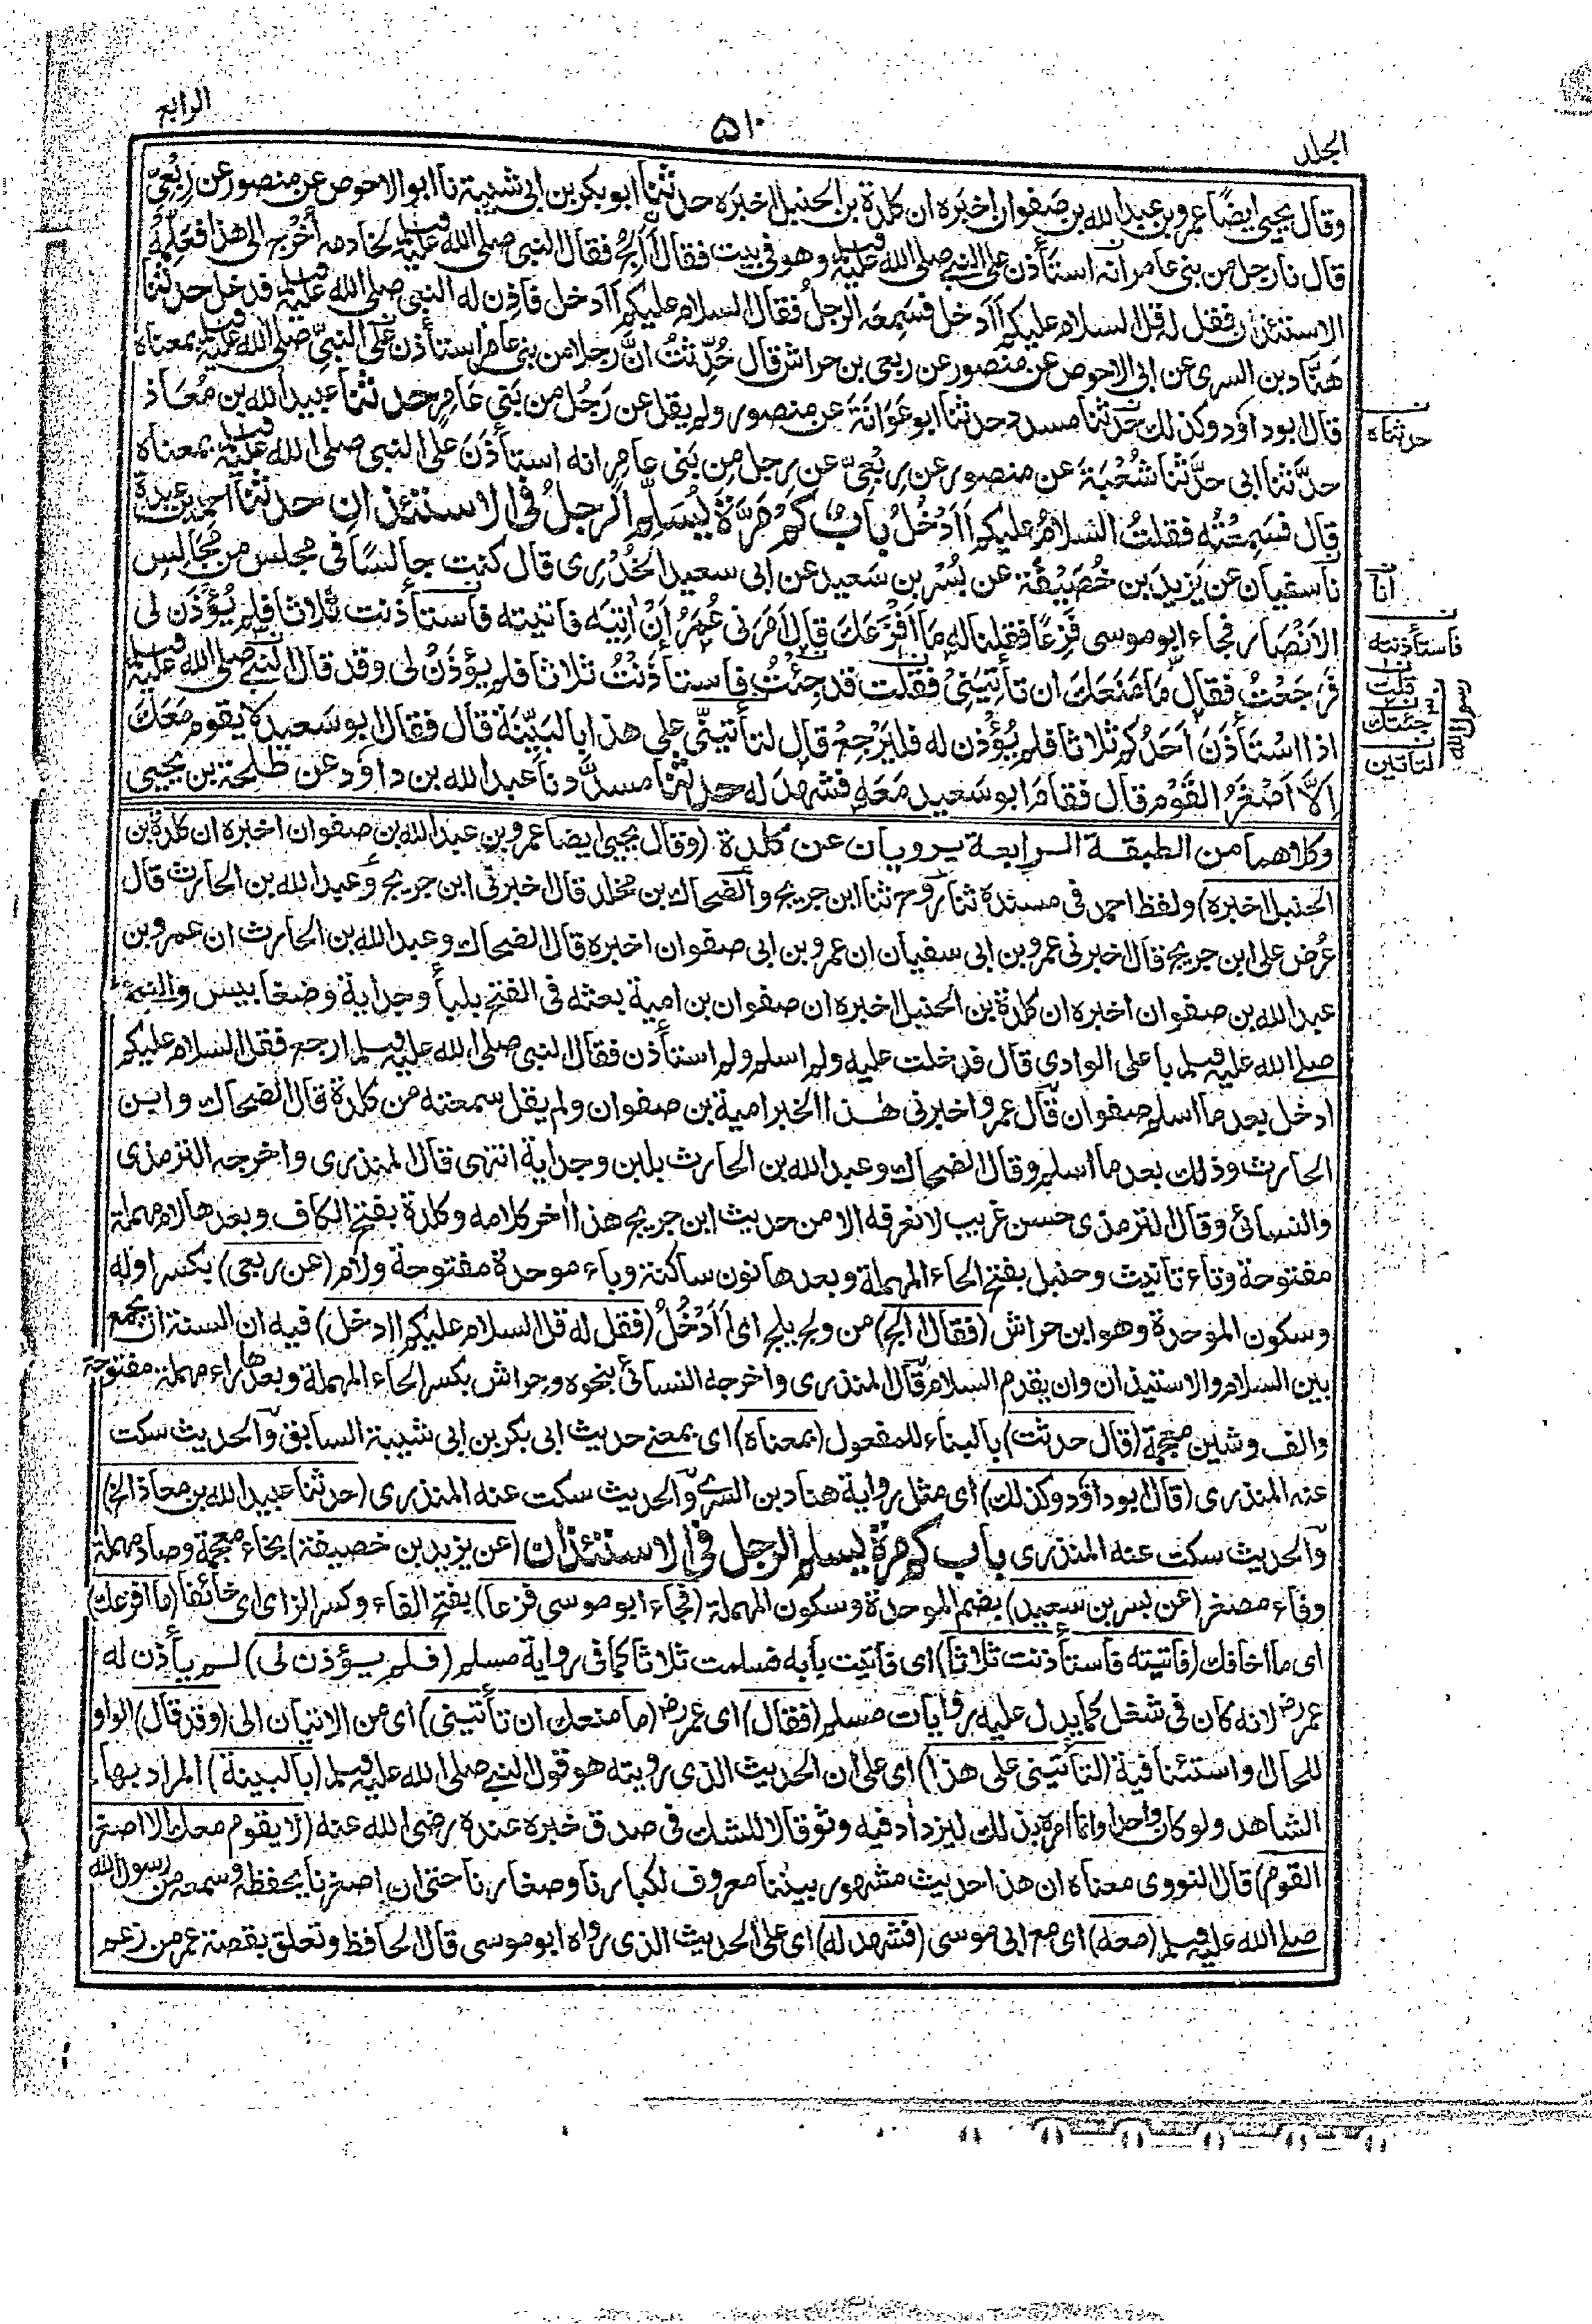 الجلد
۵۱۰
الرابع
وقال يحيى ايضًا عمرو بن عبد الله بن صفوان اخبَره ان كلدة بن الحنبل اخبَرَه حدثنا ابو بكر بن ابى شيبة نا ابو الاحوص عن منصور عن رِبْعِىّ
قال نا رجل من بنى عامر انه استأذن على النبى صلى الله عليه وسلم وهو فى بيت فقال أَلِجُ فقال النبى صلى الله عليه وسلم لخادمه أُخْرُج الى هذا فعَلِّمْهُ
الاستئذان فقل له قل السلام عليكم أَأَدخل فسَمِعَه الرجلُ فقال السلام عليكم أَأَدخل فاَذِن له النبى صلى الله عليه وسلم فدخل حدثنا
هَنَّاد بن السرى عن ابى الاحوص عن منصور عن ربعى بن حراش قال حُدِّثتُ انَّ رجلا من بنى عامر استأذن على النبىِّ صلى الله عليه وسلم بمعناه
قال ابو داؤد وكذلك حدّثنا مسدد حدثنا ابو عَوَانَةَ عن منصور ولم يقل عن رَجُل من بَنِى عَامِرٍ حدثنا عبيد الله بن مُعَاذ
حدَّثنا ابى حدَّثنا شُعْبَةَ عن منصور عن رِبْعِىّ عن رجل من بَنى عامر انه استأذَنَ على النبى صلى الله عليه وسلم بمعناه
قال فسَمِعْتُه فقلتُ السلامُ عليكم أَأَدْخُلُ بابُ كَمْ مَرَّةً يُسَلِّمُ الرجلُ فى الاستئذان حدثنا احمد بن عبدة
نا سفيان عن يَزِيدَ بن خُصَيْفَة عن بُسْر بن سَعيد عن ابى سعيد الخُدْرِى قال كنت جالسًا فى مجلس من مَجَالِسِ
الاَنْصَار فجاء ابو موسى فَزِعًا فقلنا له ما اَفْزَعَكَ قال اَمَرَنى عُمَرُ اَنْ اٰتِيَه فاتيته فاستأذنت ثلاثا فلم يُؤذَن لى
فَرَجَعْتُ فقال مَا مَنَعَكَ ان تأتِيَنِىْ فقلت قد جِئْتُ فاستأذَنْتُ ثلاثا فلم يؤذَنْ لى وقد قال النبى صلى الله عليه وسلم
اذا اسْتَأذَنَ اَحَدُكُم ثلاثا فلم يُؤْذن له فليَرْجِعْ قال لتأتيَنِّى على هذا بالبَيِّنَة قال فقال ابو سَعيد لا يقوم مَعَكَ
اِلَّا اَصْغَرُ القَوْم قال فقامَ ابو سَعيد مَعَه فشَهِدَ له حدثنا مسدَّد نا عبد الله بن داوٗد عن طَلحة بن يحيى
حدثناه
انا
فاستأذنته
قلت
جئتك
رسول الله
لتاتين
وكلاهما من الطبقة الرابعة يرويان عن كلدة (وقال يحيى ايضا عمرو بن عبد الله بن صفوان اخبره ان كلدة بن
الحنبل اخبره) ولفظ احمد فى مسنده ثنا روح ثنا ابن جريج والضحاك بن مخلد قال اخبرنى ابن جريج وعبد الله بن الحارث قال
عُرض على ابن جريج قال اخبرنى عمرو بن ابى سفيان ان عمرو بن ابى صفوان اخبره قال الضحاك وعبد الله بن الحارث ان عمرو بن
عبد الله بن صفوان اخبره ان كلدة بن الحنبل اخبره ان صفوان بن امية بعثه فى الفتح بلبأ وجداية وضغابيس والنبى
صلى الله عليه وسلم باعلى الوادى قال فدخلت عليه ولم اسلم ولم استأذن فقال النبى صلى الله عليه وسلم ارجع فقل السلام عليكم
ادخل بعد ما اسلم صفوان قال عمرو اخبرنى هذا الخبر امية بن صفوان ولم يقل سمعته من كلدة قال الضحاك وابن
الحارث وذلك بعد ما اسلم وقال الضحاك وعبد الله بن الحارث بلبن وجداية انتهى قال المنذرى واخرجه الترمذى
والنسائى وقال الترمذى حسن غريب لا نعرفه الا من حديث ابن جريج هذا اٰخر كلامه وكلدة بفتح الكاف وبعدها لام مهملة
مفتوحة وتاء تأنيث وحنبل بفتح الحاء المهملة وبعدها نون ساكنة وباء موحدة مفتوحة ولام (عن ربعى) بكسر اوله
وسكون الموحدة وهو ابن حراش (فقال الج) من ولج يلج اى أَأَدْخُلُ (فقل له قل السلام عليكم اادخل) فيه ان السنة ان يجمع
بين السلام والاستيذان وان يقدم السلام قال المنذرى واخرجه النسائى بنحوه وحراش بكسر الحاء المهملة وبعدها راء مهملة مفتوحة
والف وشين معجمة (قال حدثت) بالبناء للمفعول (بمعناه) اى بمعنى حديث ابى بكر بن ابى شيبة السابق والحديث سكت
عنه المنذرى (قال ابو داؤد وكذلك) اى مثل رواية هناد بن السرى والحديث سكت عنه المنذرى (حدثنا عبيد الله بن معاذ الخ)
والحديث سكت عنه المنذرى باب كم مرة يسلم الرجل فى الاستئذان (عن يزيد بن خصيفة) بخاء معجمة وصاد مهملة
وفاء مصغر (عن بسر بن سعيد) بضم الموحدة وسكون المهملة (فجاء ابو موسى فزعا) بفتح الفاء وكسر الزاى اى خائفا (ما افزعك)
اى ما اخافك (فاتيته فاستأذنت ثلاثا) اى فأتيت بابه فسلمت ثلاثا كما فى رواية مسلم (فلم يؤذن لى) لم يأذن له
عمر رض لانه كان فى شغل كما يدل عليه روايات مسلم (فقال) اى عمر رض (ما منعك ان تأتينى) اى من الاتيان الى (وقد قال) الواو
للحال واستئنافية (لتأتينى على هذا) اى على ان الحديث الذى رويته هو قول النبى صلى الله عليه وسلم (بالبينة) المراد بها
الشاهد ولو كان واحدا وانما امره بذلك ليزداد فيه وثوقا لا للشك فى صدق خبره عنده رضى الله عنه (لا يقوم معك الا اصغر
القوم) قال النووى معناه ان هذا حديث مشهور بيننا معروف لكبارنا وصغارنا حتى ان اصغرنا يحفظه وسمعه من رسول الله
صلى الله عليه وسلم (معه) اى مع ابى موسى (فشهد له) اى على الحديث الذى رواه ابو موسى قال الحافظ وتعلق بقصة عمر من زعم